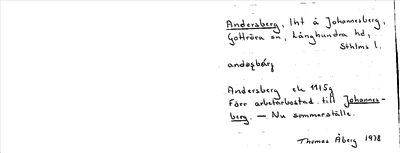 Andersberg, lht å Johannesberg,
Gottröra sn, Långhundra hd,
Sthlms l.
andəşbærj
Andersberg ek 11I5g
Förr arbetarbostad till Johannes-
berg. — Nu sommarställe.
Thomas Åberg 1978